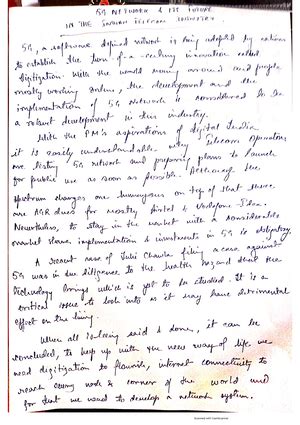 5G NETWORK & ITS FUTURE
IN THE INDIAN TELECOM INDUSTRY.
5G, a software defined network is being adopted by nations
to establish the turn-of-a-century innovation called
digitization. With the world moving around and people
mostly working online, the development and the
implementation of 5G Network is considered to be
a robust development in this industry.
With the PM's aspirations of digital India
it is easily understandable why Telecom Operators
are testing 5G network and preparing plans to launch
for public use as soon as possible. Although the
spectrum charges are humongous on top of that there
are AGR dues for mostly Airtel & Vodafone-Idea.
Nevertheless, to stay in the market with a considerable
market share implementation & investments in 5G is obligatory.
A recent case of Juhi Chawla filing a case against
5G was in due diligence to the health hazard that the
technology brings which is yet to be studied. It is a
critical issue to look into as it may have detrimental
effect on the living.
When all is being said & done, it can be
concluded, to keep up with the new way of life we
need digitization to flourish, internet connectivity to
reach every nook & corner of the world and
for that we need to develop a network system.